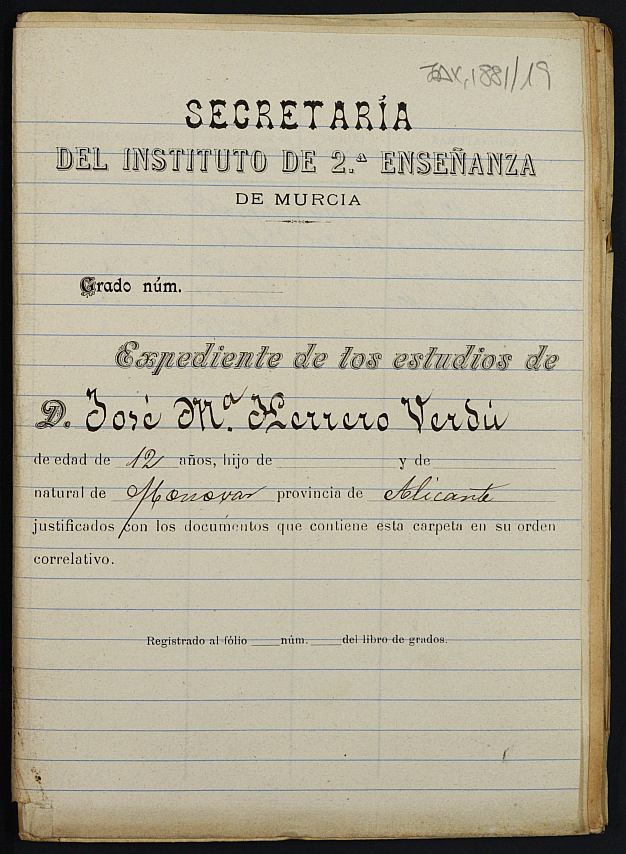 IAX, 1881/19
SECRETARÍA
DEL INSTITUTO DE 2.ª ENSEÑANZA
DE MURCIA
Grado núm.
Expediente de los estudios de
D. José Mª Herrero Verdú
de edad de 12 años, hijo de y de
natural de Monovar provincia de Alicante
justificados con los documentos que contiene esta carpeta en su orden
correlativo.
Registrado al fólio núm. del libro de grados.